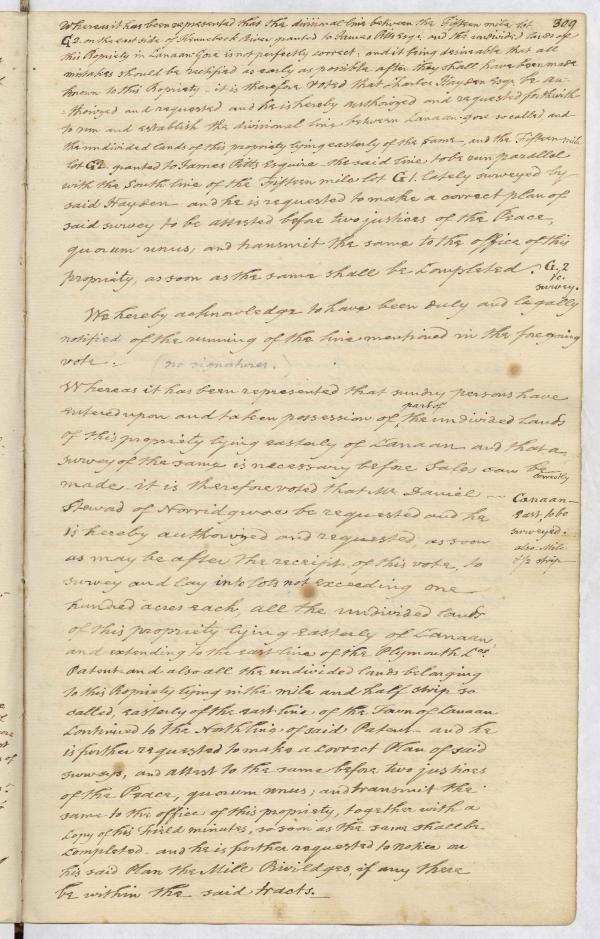 309
Whereas it has been represented that the divisional line between the Fifteen mile lot
G2. on the east side of Kennebeck River granted to James Pitts Esqr. and the undivided lands of
this Propriety in Canaan Gore is not perfectly correct; and it being desireable that all
mistakes should be rectified as early as possible after they shall have been made
known to this Propriety - it is therefore Voted that Charles Hayden Esqr. be au-
-thorized and requested and he is hereby authorized and requested forthwith
to run and establish the divisional line between Canaan-gore so called, and
the undivided lands of this propriety lying easterly of the same, and the Fifteen mile
lot G2. granted to James Pitts Esquire the said line to be run parallel
with the South line of the Fifteen mile lot G1. lately surveyed by
said Hayden and he is requested to make a correct plan of
said survey to be attested before two justices of the Peace,
quorum unus, and transmit the same to the office of this
propriety, as soon as the same shall be Completed.
G.2
&c.
survey.
We hereby acknowledge to have been duly and legally
notified of the running of the line mentioned in the foregoing
vote. (no signatures.)
Whereas it has been represented that sundry persons have
entered upon and taken possession of part of the undivided Lands
of this propriety lying easterly of Canaan and that a
survey of the same is necessary before Sales can be correctly
made - it is therefore voted that Mr. Daniel
Steward of Norridgwoc be requested and he
is hereby authorized and requested, as soon
as may be after the receipt of this vote, to
survey and lay into lots not exceeding one
hundred acres each, all the undivided lands
of this propriety lying easterly of Canaan
and extending to the east line of the Plymouth Cos.
Patent and also all the undivided lands belonging
to this Propriety lying in the mile and half strip so
called, easterly of the east line of the Town of Canaan
Continued to the North line of said Patent - and he
is further requested to make a correct Plan of said
surveys, and attest to the same before two justices
of the Peace, quorum unus; and transmit the
same to the office of this propriety, together with a
Copy of his Field minutes, so soon as the same shall be
Completed - and he is further requested to notice on
his said Plan the Mill Priviledges, if any there
be within the said tracts.
Canaan
East, to be
surveyed.
also Mile
& 1/2 strip